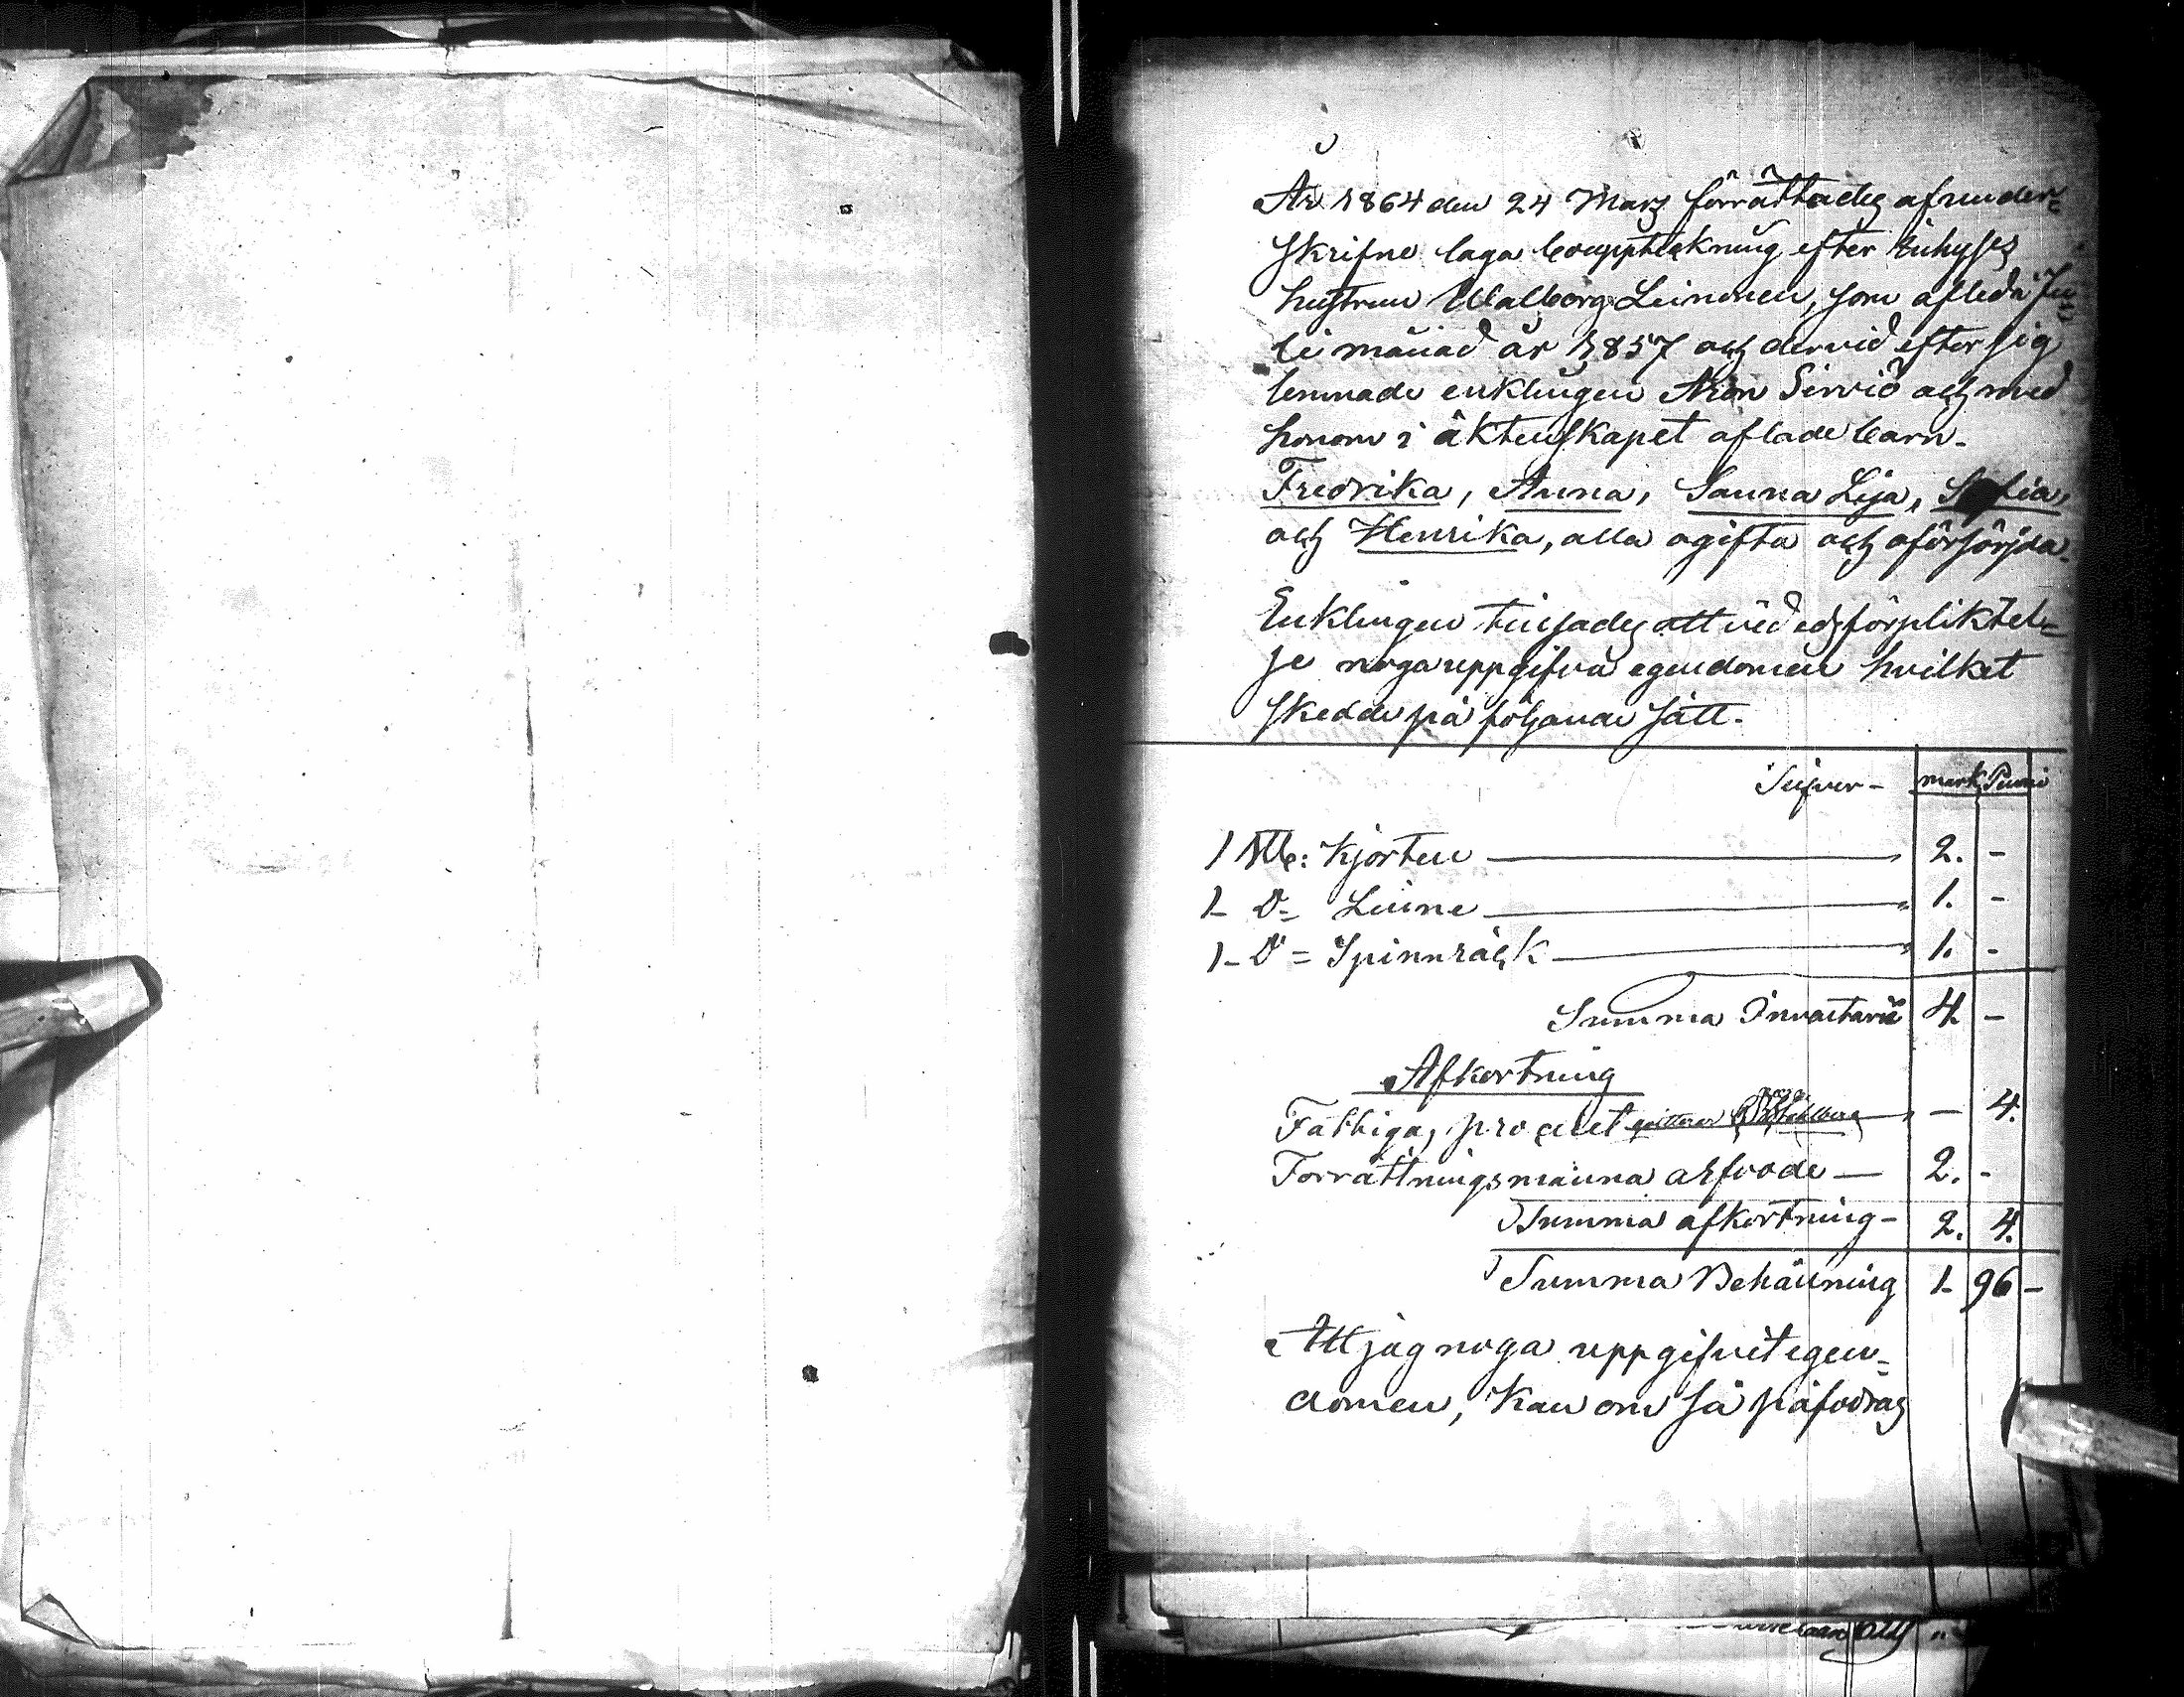 År 1864 den 24 Mars förrättades af under=
skrifne laga bouppteckning efter Inhyses
hustrun Walborg Leinonen, som afled i Ju=
li månad år 1857 och dervid efter sig
lemnade enklingen Aron Sirviö och med
honom i äktenskapet aflade barn.
Fredrika, Anna, Sanna Lisa, Sofia,
och Henrika, alla ogifta och oförsörjda.
Enklingen tillsades att vid edsförpliktel=
se noga uppgifva egendomen hvilket
skedde på följande sätt.
Silfver - mark Penni
1 St: Kjorten 2. -
1 - D= Linne 1. -
1 - D = Spinnråck 1. -
Summa Inventarie 4. -
Afkortning
Fattiga procent qvitteras - 4.
Förrättningsmänna arfvode - 2. -
Summa afkortning - 2. 4.
Summa Behållning 1 - 96 -
Att jag noga uppgifvit egen=
domen, kan om så påfodras